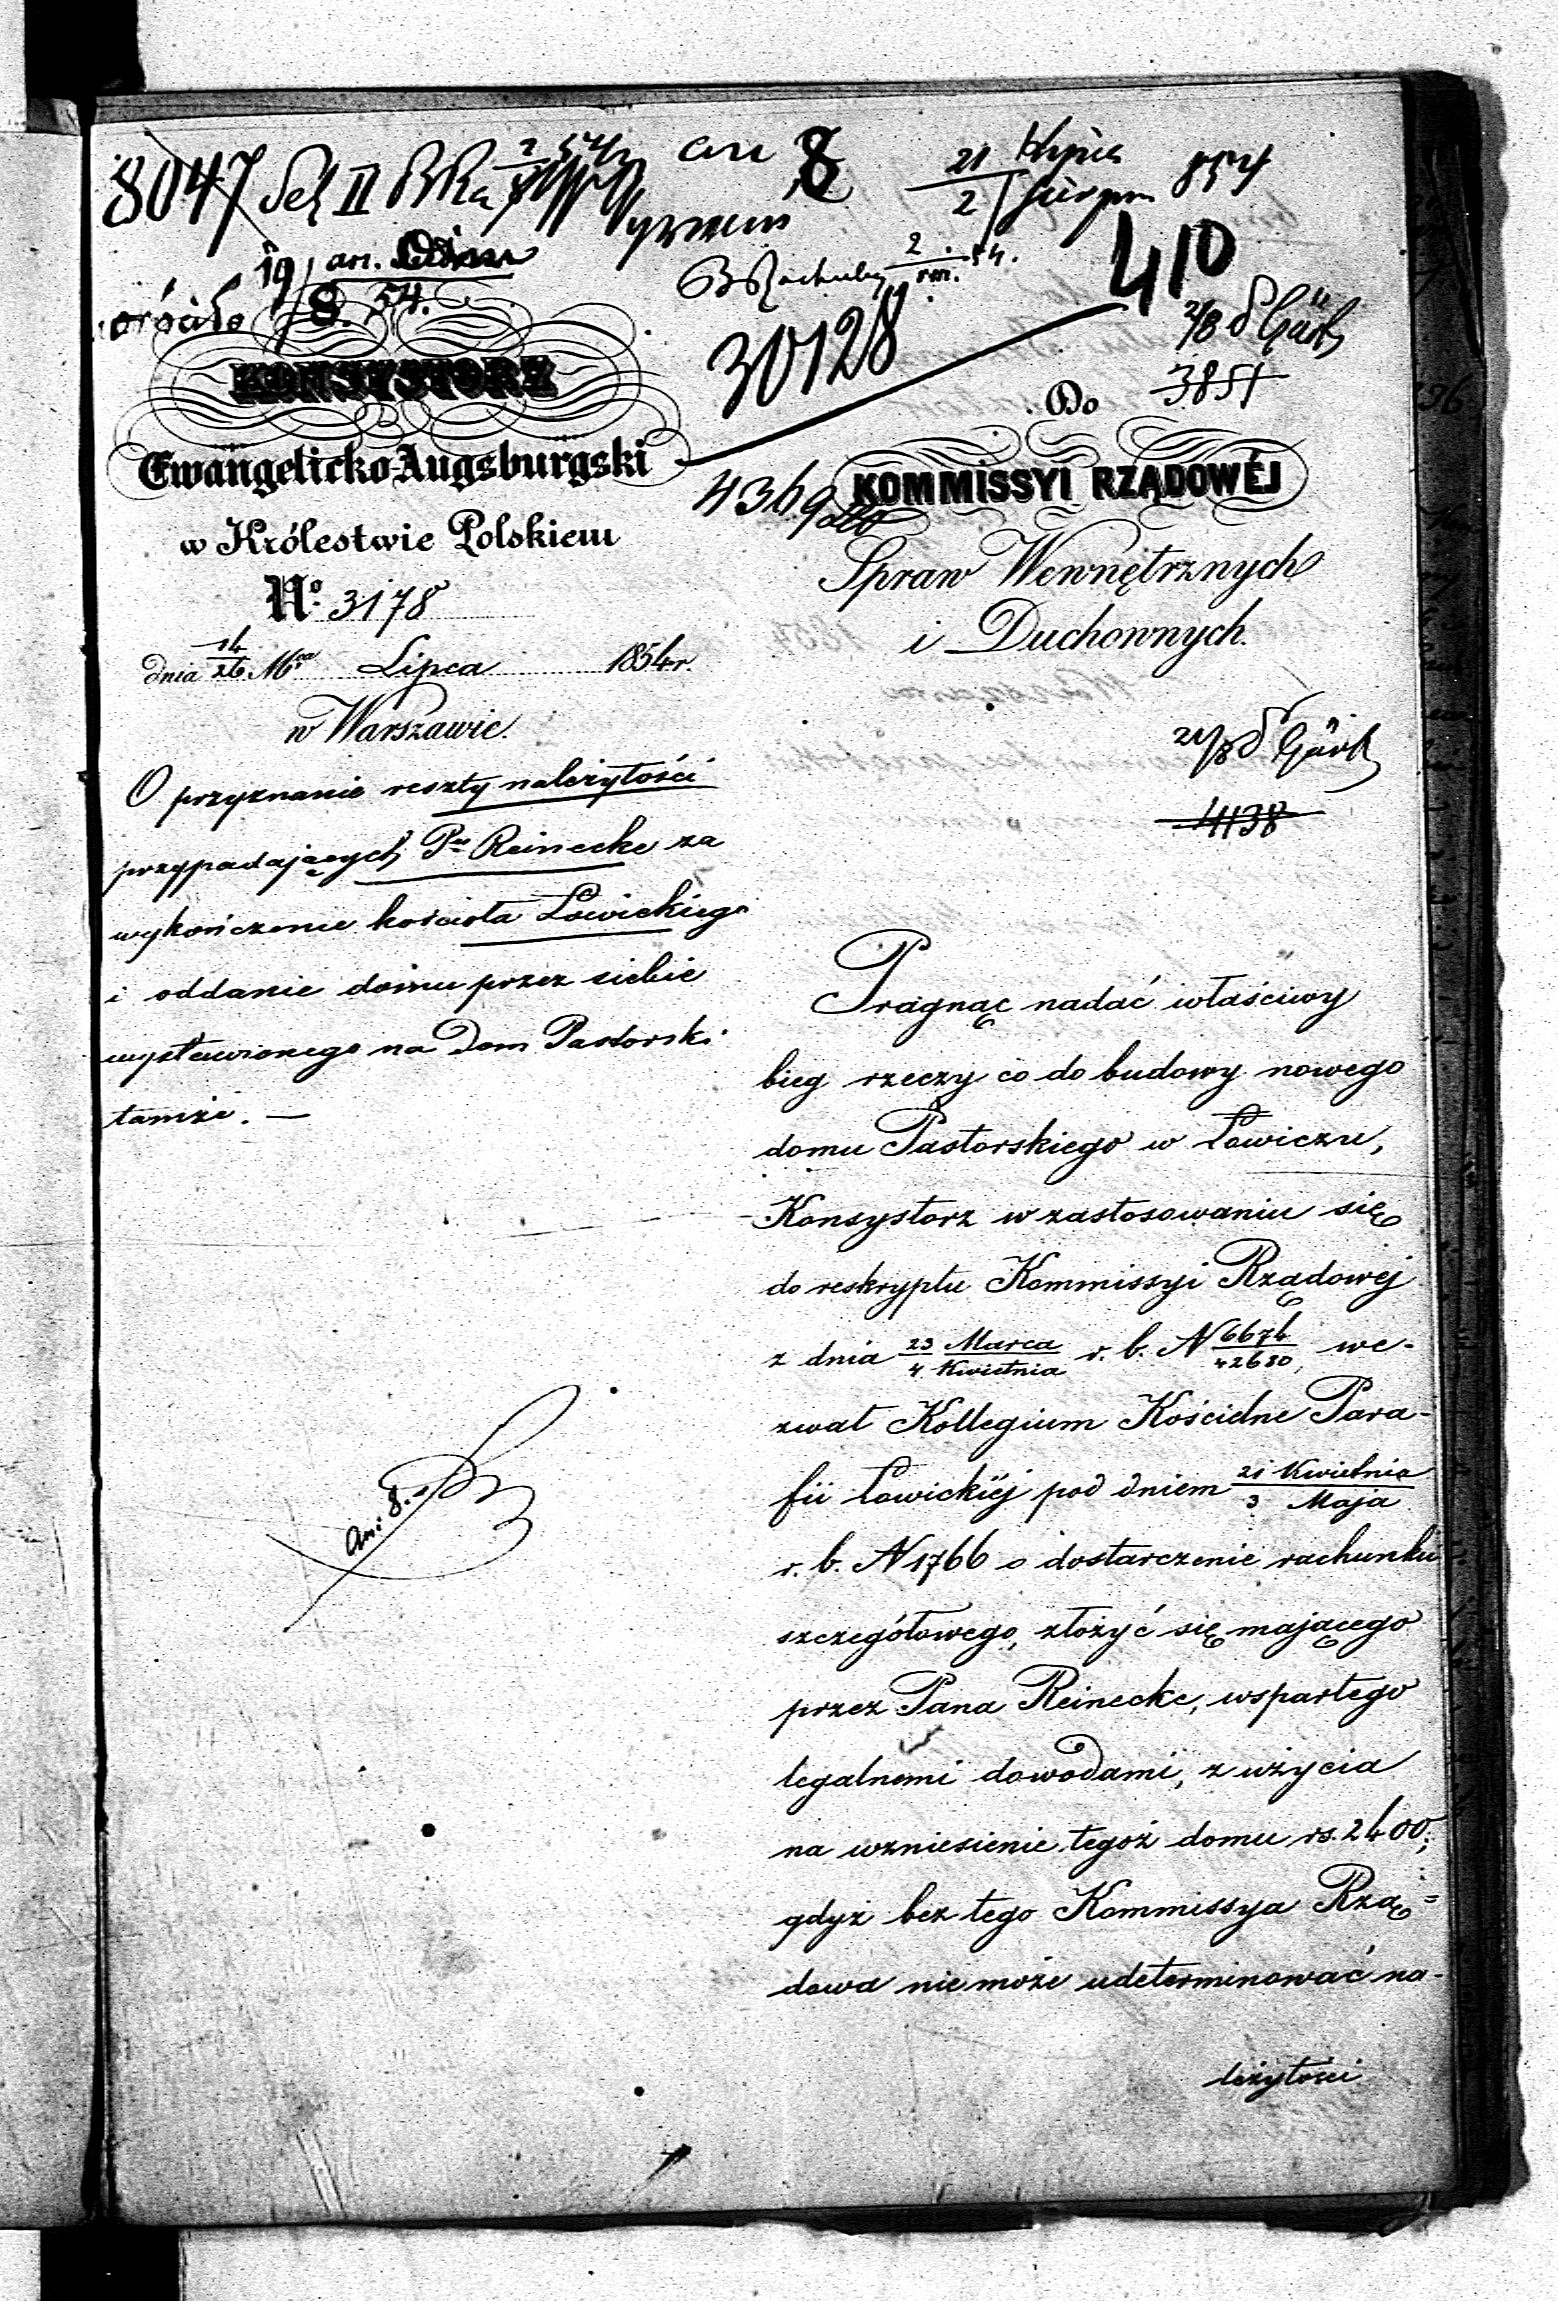 8047
an 8
21 Lipca 1854
2 Sierpn
19 8. 54.
30128
410
3851
4369
KONSYSTORZ
Ewangelicko-Augsburgski
w Królestwie Polskiem
No. 3178
dnia 14/26 Mca Lipca 1854 r.
w Warszawie.
O przyznanie reszty należytości
przypadających Pu Reinecke za
wykończenie kościoła Łowickiego
i oddanie domu przez siebie
wystawionego na Dom Pastorski
tamże. —
an: 8.
Do
KOMMISSYI RZĄDOWÉJ
Spraw Wewnętrznych
i Duchownych.
4138
Pragnąc nadać właściwy
bieg rzeczy co do budowy nowego
domu Pastorskiego w Łowiczu,
Konsystorz w zastosowaniu się
do reskryptu Kommissyi Rządowej
z dnia 23 Marca / 4 Kwietnia r. b. N 6674/42680, we-
zwał Kollegium Kościelne Para-
fii Łowickiéj pod dniem 21 Kwietnia / 3 Maja
r. b. N 1766 o dostarczenie rachunku
szczegółowego, złożyć się mającego
przez Pana Reinecke, wspartego
legalnemi dowodami, z użycia
na wzniesienie tegoż domu rs. 2400;
gdyż bez tego Kommissya Rzą-
dowa nie może udeterminować na-
leżytości